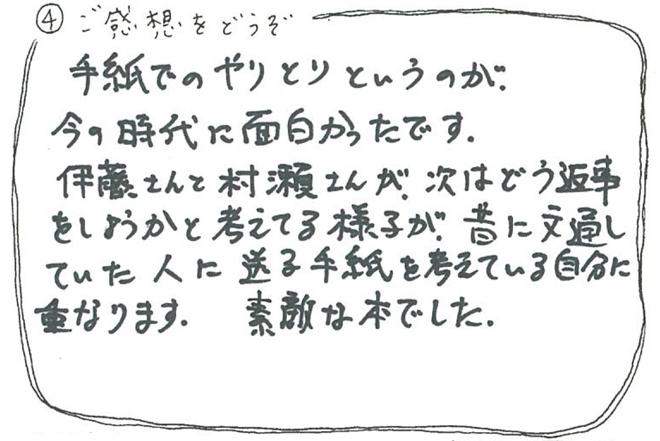 ④ ご感想をどうぞ
手紙でのやりとりというのが、
今の時代に面白かったです。
伊藤さんと村瀬さんが、次はどう返事
をしようかと考えてる様子が、昔に文通し
ていた人に送る手紙を考えている自分に
重なります。 素敵な本でした。